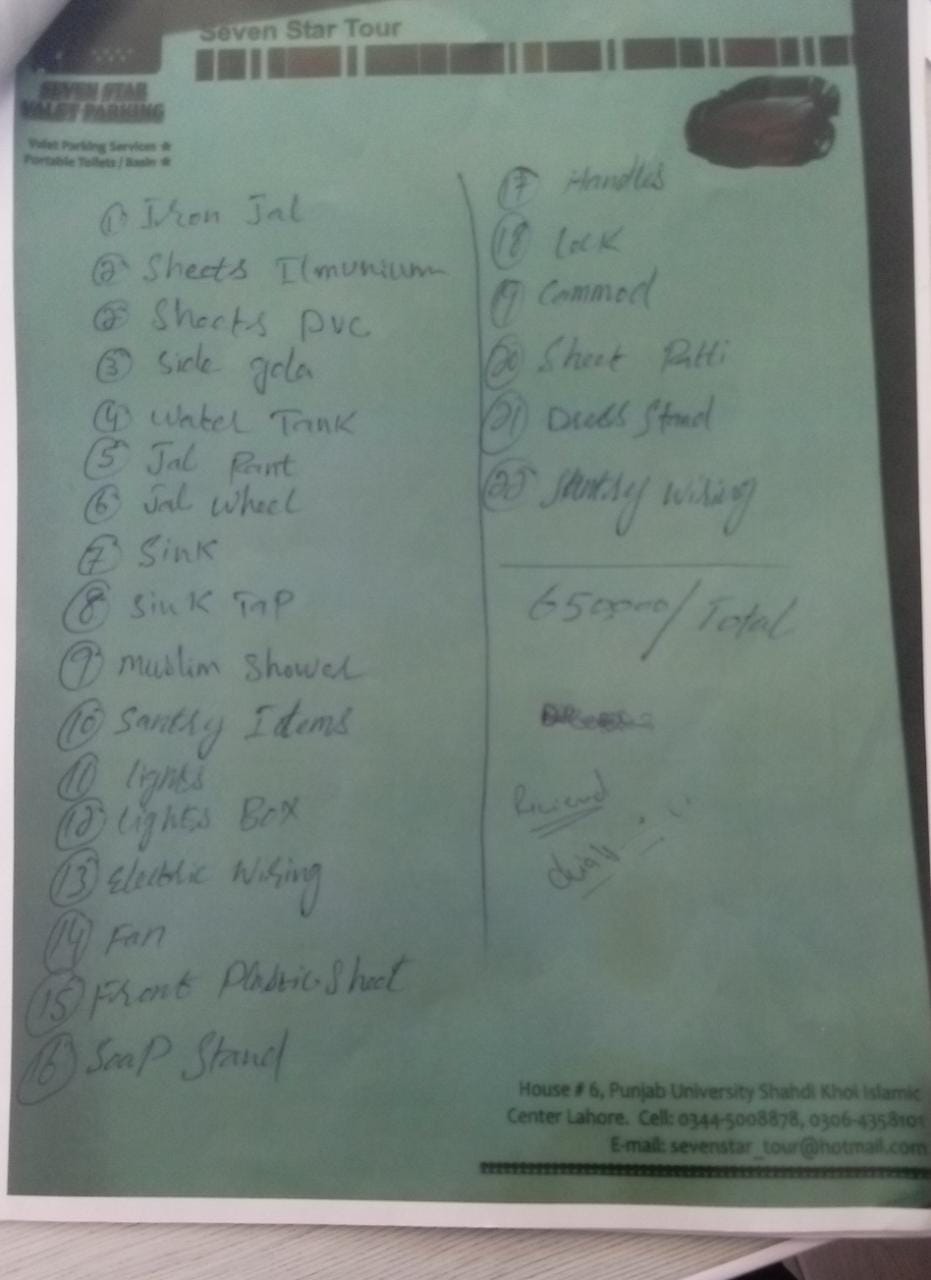 Seven Star Tour
SEVEN STAR
VALET PARKING
Valet Parking Services ★
Portable Toilets / Basin ★
① Iron Jal
② Sheets Ilmunium
② Sheets PVC
③ Side gola
④ Water Tank
⑤ Jal Pant
⑥ Jal Wheel
⑦ Sink
⑧ Sink TaP
⑨ Muslim Shower
⑩ Santry Items
⑪ lights
⑫ lights Box
⑬ Electric Wiring
⑭ Fan
⑮ Front Plastic Sheet
⑯ SoaP Stand
⑰ Handles
⑱ lock
⑲ Commod
⑳ Sheet Patti
㉑ Dress Stand
㉒ Santry Wiring
650,000/ Total
House # 6, Punjab University Shahdi Khoi Islamic
Center Lahore. Cell: 0344-5008878, 0306-4358101
E-mail: sevenstar_tour@hotmail.com